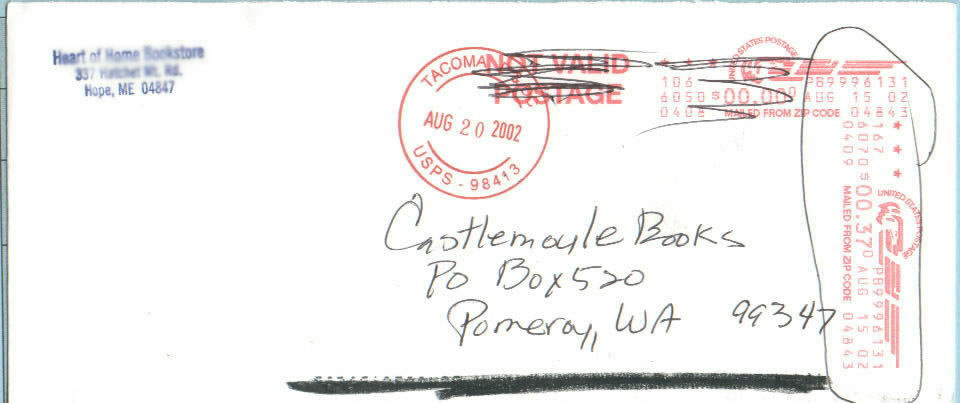 Heart of Home Bookstore
337 Hatchet Mt. Rd.
Hope, ME 04847
TACOMA
AUG 20 2002
USPS - 98413
NOT VALID
POSTAGE
UNITED STATES POSTAGE
106 PB9996131
6050 $00.000 AUG 15 02
0408 MAILED FROM ZIP CODE 04843
UNITED STATES POSTAGE
167 PB9996131
6070 $00.370 AUG 15 02
0409 MAILED FROM ZIP CODE 04843
Castlemoyle Books
Po Box 520
Pomeroy, WA 99347